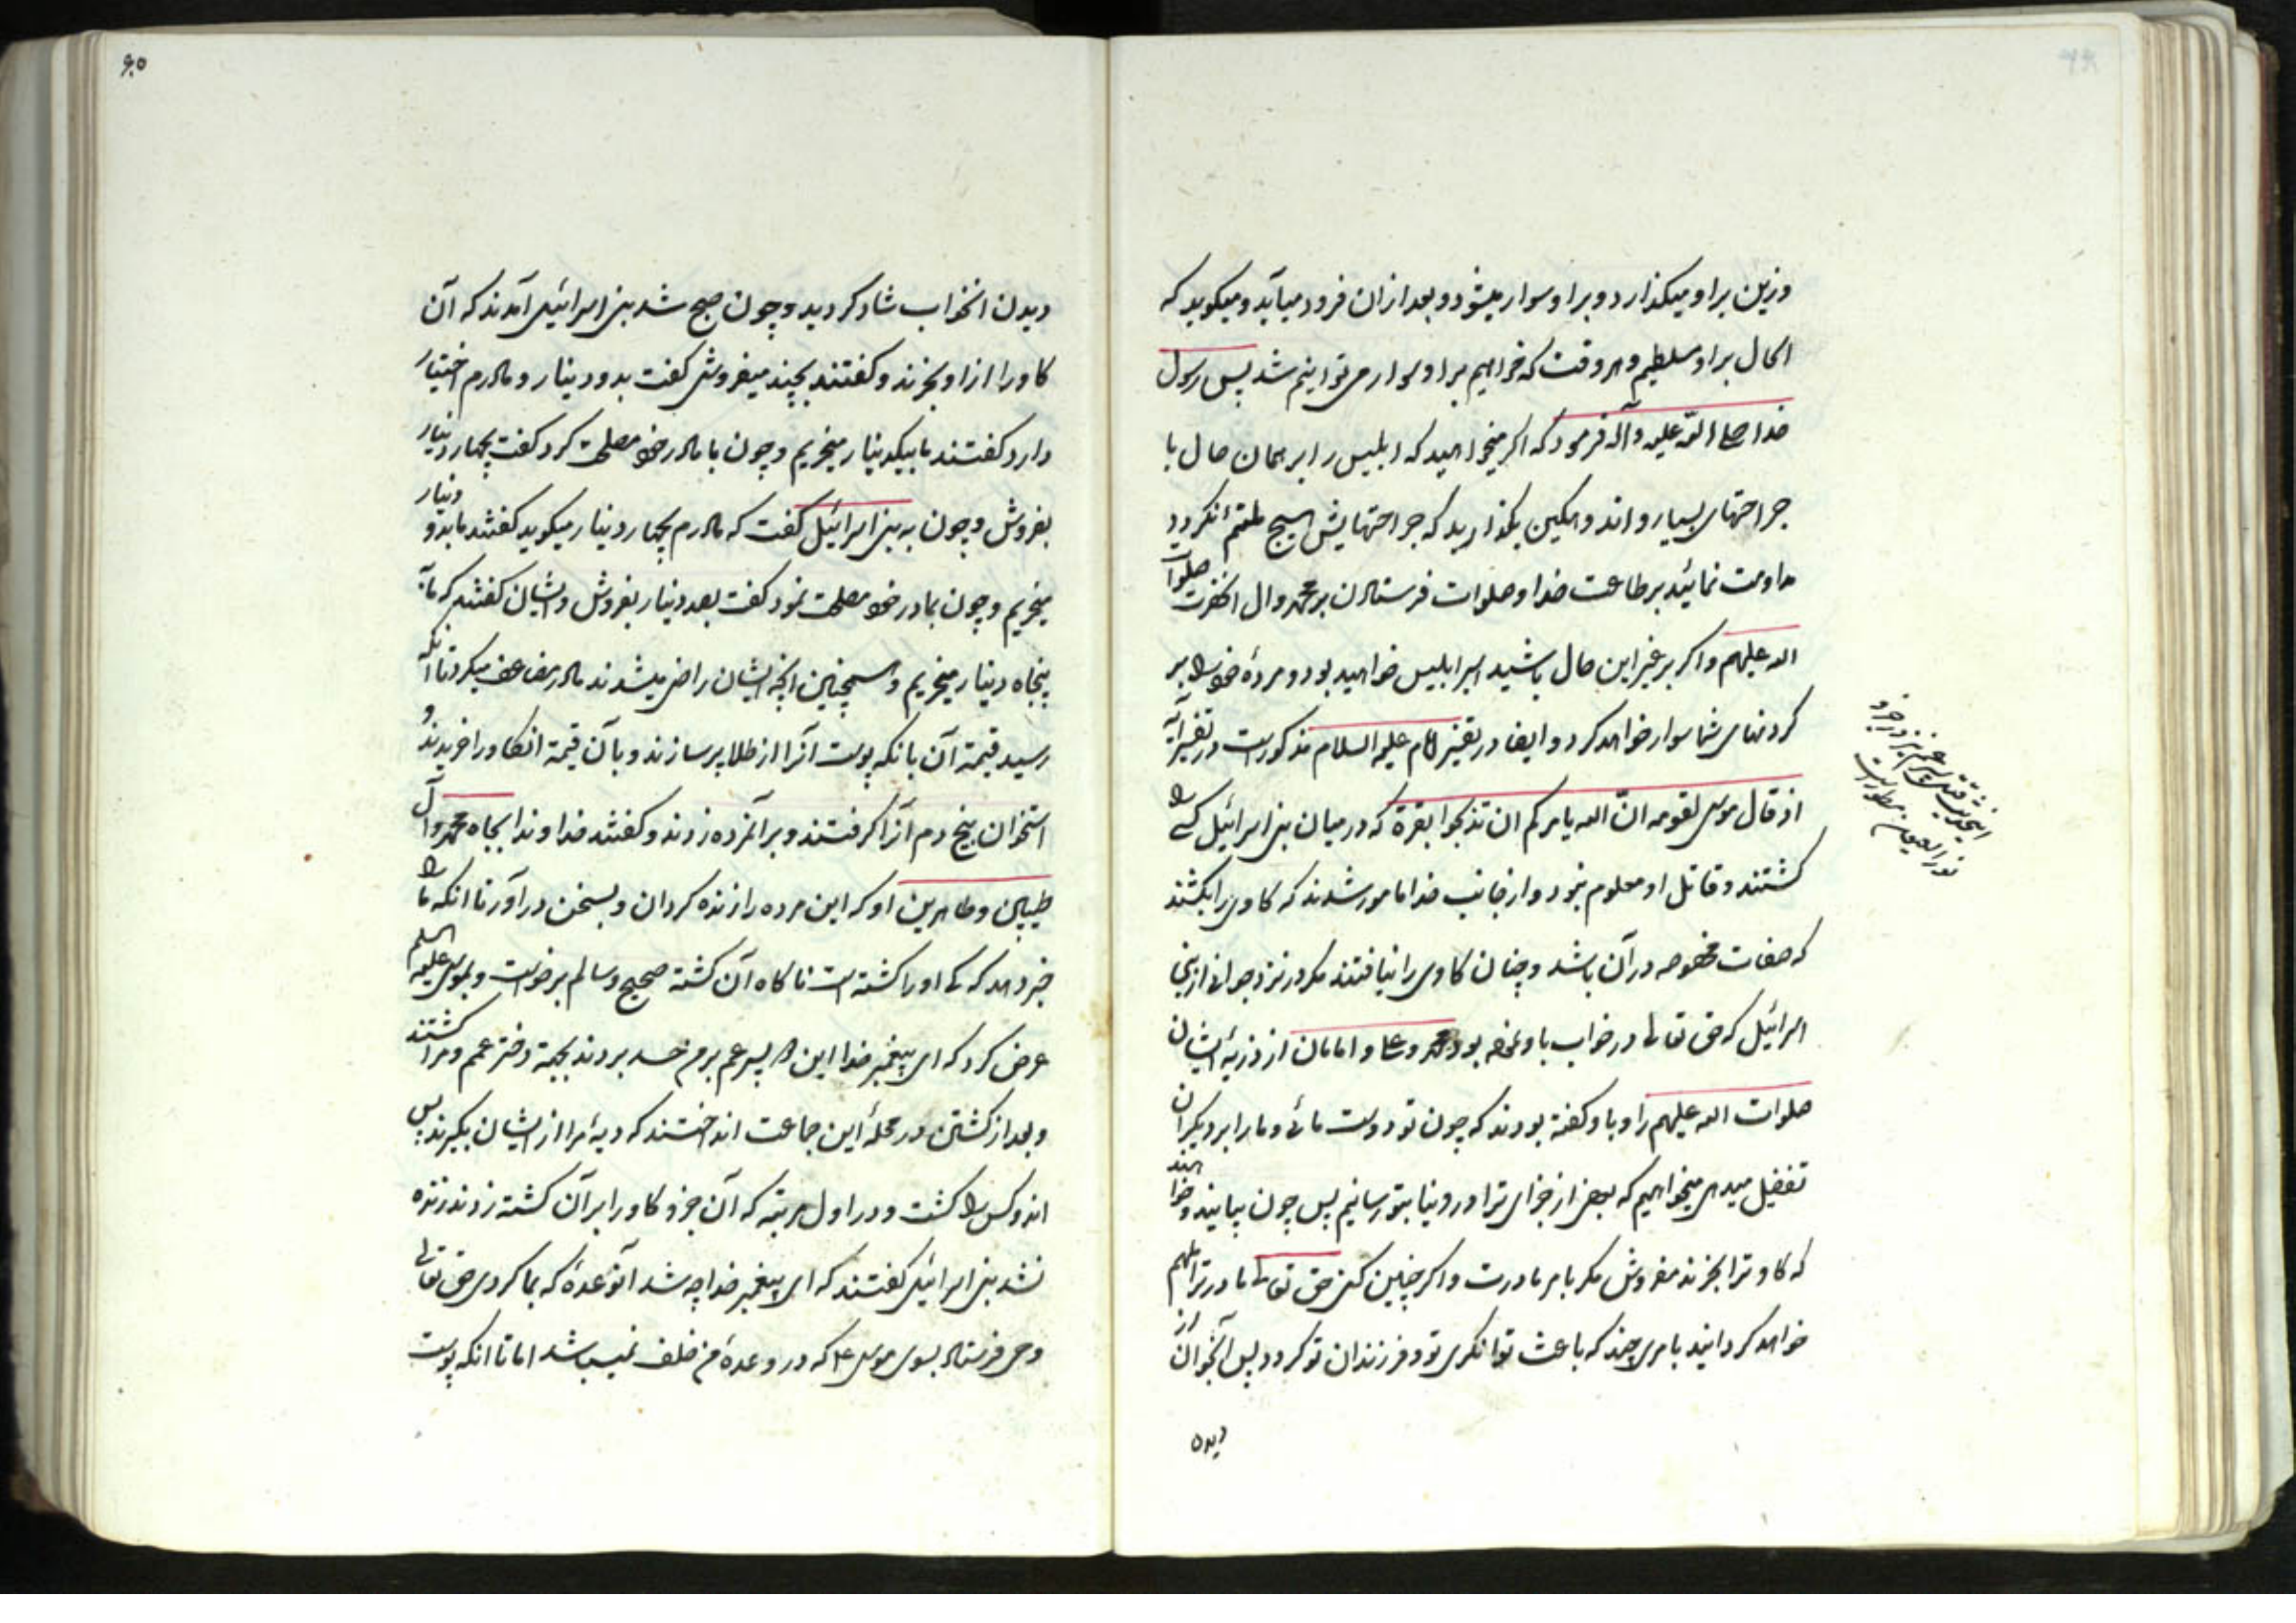 وزین بر او میکذارد و بر او سوار میشود و بعد از ان فرود میآید و میکوید که
الحال بر او مسلطیم و هر وقت که خواهیم بر او سوار می توانیم شد پس رسول
خدا صلی الله علیه وآله فرمود که اکر میخواهید که ابلیس را بر همان حال با
جراحتهای بسیار و اندوهکین بکذارید که جراحتهایش هیچ ملتئم نکردد
مداومت نمائید بر طاعت خدا و صلوات فرستادن بر محمد و ال انحضرت صلوات
الله علیهم و اکر بر غیر این حال باشید اسیر ابلیس خواهید بود و مردهٔ خود را بر
کردنهای شما سوار خواهد کرد و ایضا در تفسیر امام علیه السلام مذکور است در تفسیر آیهٔ
اذ قال موسی لقومه انّ الله یامرکم ان تذبحوا بقرة که در میان بنی اسرائیل کسی را
کشتند و قاتل او معلوم نبود و از جانب خدا مامور شدند که کاوی را بکشند
که صفات مخصوصه در آن باشد و چنان کاوی را نیافتند مکر در نزد جوانی از بنی
اسرائیل که حق تعالی در خواب باو نموده بود محمد و علی و امامان از ذریهٔ ایشان
صلوات الله علیهم را و باو کفته بودند که چون تو دوست مائی و ما را بر دیکران
تفضیل میدهی میخواهیم که بعضی از جزای ترا در دنیا بتو رسانیم پس چون بیایند و خواهند
که کاو ترا بخرند مفروش مکر بامر مادرت و اکر چنین کنی حق تعالی مادر ترا ملهم
خواهد کردانید بامری چند که باعث توانکری تو و فرزندان تو کردد پس آنجوان از
دیدن
دیدن انخواب شاد کردید و چون صبح شد بنی اسرائیل آمدند که آن
کاو را از او بخرند و کفتند بچند میفروشی کفت بدو دینار و مادرم اختیار
دارد کفتند ما بیکدینار میخریم و چون با مادر خود مصلحت کرد کفت بچهار دینار
بفروش و چون به بنی اسرائیل کفت که مادرم بچهار دینار میکوید کفتند ما بدو دینار
میخریم و چون بمادر خود مصلحت نمود کفت بصد دینار بفروش و ایشان کفتند که ما به
پنجاه دینار میخریم و همچنین انچه ایشان راضی میشدند مادر مضاعف میکرد تا آنکه
رسید قیمة آن بانکه پوست آنرا از طلا پر سازند و بآن قیمة انکاو را خریدند و
استخوان بیخ دم آنرا کرفتند و بر آنمرده زدند و کفتند خداوندا بجاه محمد و آل
طیبین و طاهرین او که این مرده را زنده کردان و بسخن در آور تا انکه ما را
خبر دهد که کی او را کشته است ناکاه آن کشته صحیح و سالم برخواست و بموسی علیه السلم
عرض کرد که ای پیغمبر خدا این دو پسر عم بر من حسد بردند بجهة دختر عمم و مرا کشتند
و بعد از کشتن در محلهٔ این جماعت انداختند که دیهٔ مرا از ایشان بکیرند پس
اندو کس را کشت و در اول مرتبه که آن جزو کاو را بر آن کشته زدند زنده
نشد بنی اسرائیل کفتند که ای پیغمبر خدا چه شد آنوعدهٔ که بما کردی حق تعالی
وحی فرستاد بسوی موسی ع که در وعدهٔ من خلف نمیباشد اما تا انکه پوست